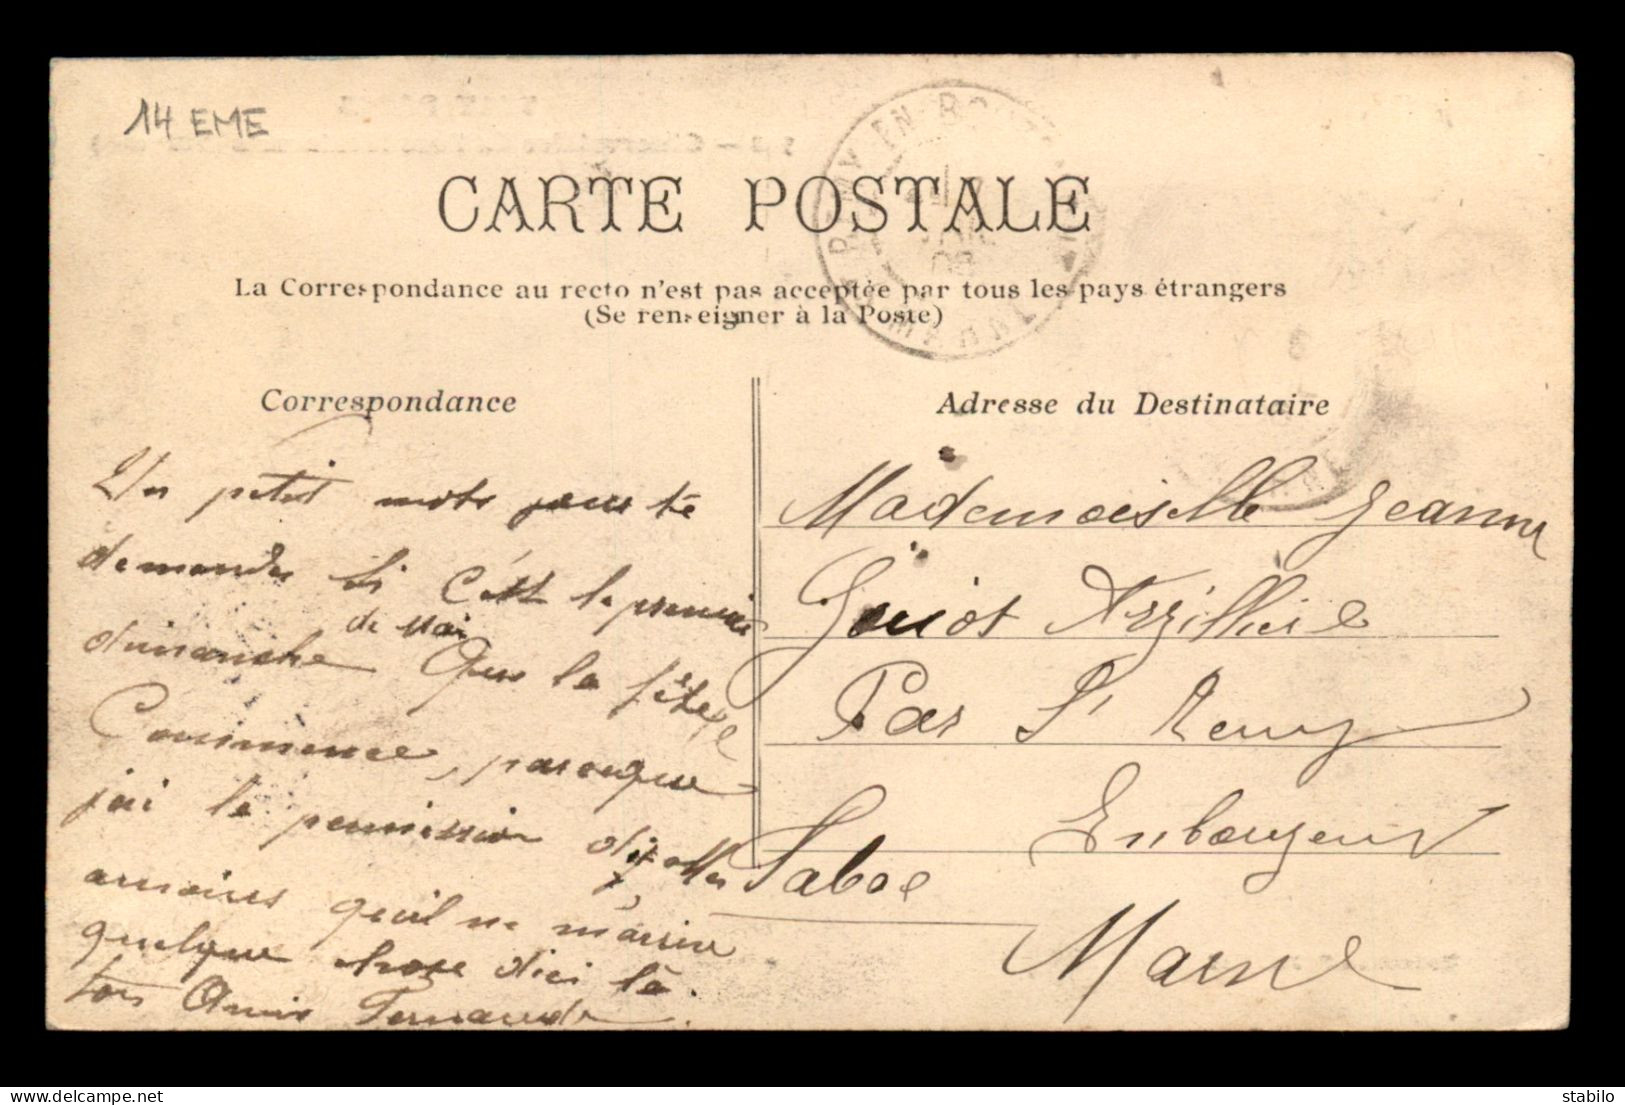 14 EME
CARTE POSTALE
La Correspondance au recto n'est pas acceptée par tous les pays étrangers
(Se renseigner à la Poste)
Correspondance
Un petit mots pour te
demander si c'est le premier
dimanche de Mai Que la fête
Commence, parceque
jai la permission dit aller
amoins qu'il ne m'arrive
quelque chose dici la.
ton Amie Fernande
Adresse du Destinataire
Mademoiselle Jeanne
Guiot Arzilliere
Par St Remy
En bouzemont
Sabloe
Marne
ST REMY EN BOUZEMONT
MARNE
delcampe.net
stabilo